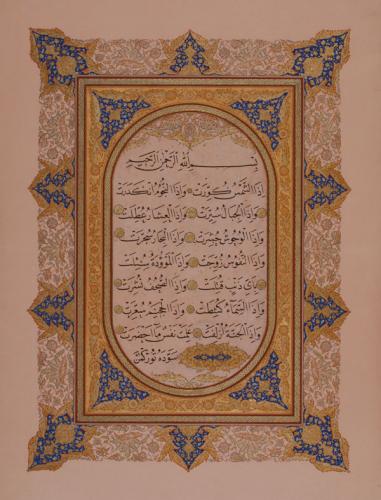 بسم الله الرحمن الرحيم
إذا الشمس كورت وإذا النجوم انكدرت
وإذا الجبال سيرت وإذا العشار عطلت
وإذا الوحوش حشرت وإذا البحار سجرت
وإذا النفوس زوجت وإذا الموؤدة سئلت
بأي ذنب قتلت وإذا الصحف نشرت
وإذا السماء كشطت وإذا الجحيم سعرت
وإذا الجنة أزلفت علمت نفس ما أحضرت
سوده